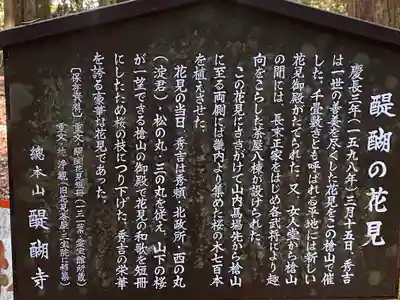 醍醐の花見
慶長三年（一五九八年）三月十五日、秀吉
は一世の善美を尽くした花見をこの槍山で催
した。千畳敷きとも呼ばれる平地には新しい
花見御殿がたてられた。又、女人堂から槍山
の間には、長束正家をはじめ各武将により趣
向をこらした茶屋八棟が設けられた。
この花見にさきがけて山内馬場先から槍山
に至る両側には畿内より集めた桜の木七百本
を植えさせた。
花見の当日、秀吉は秀頼、北政所、西の丸
（淀君）、松の丸・三の丸を従え、山下の桜
が一望できる槍山の御殿で花見の和歌を短冊
にしたため桜の枝につり下げた。秀吉の栄華
を誇る豪華な花見であった。
總本山 醍醐寺